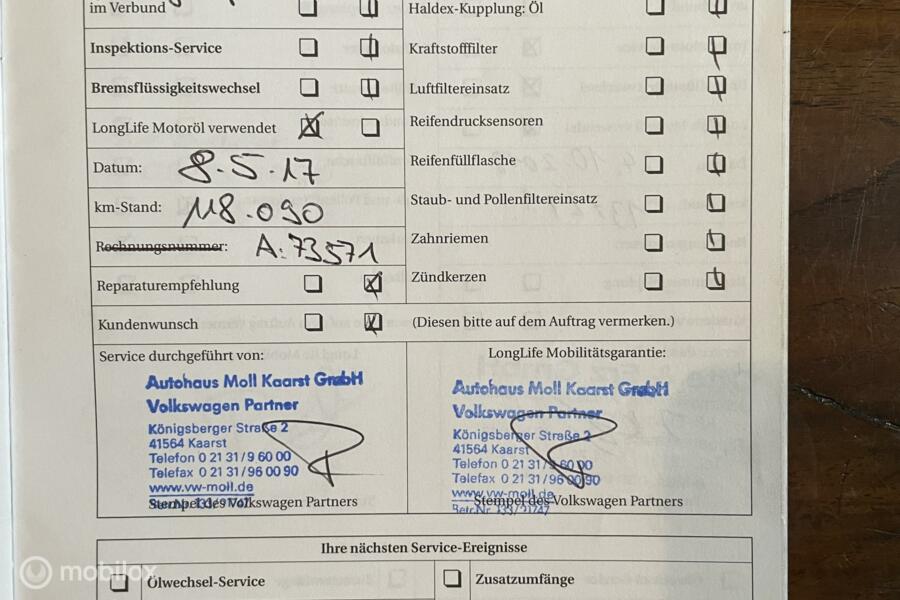 im Verbund
Haldex-Kupplung: Öl
Inspektions-Service
Kraftstofffilter
Bremsflüssigkeitswechsel
Luftfiltereinsatz
LongLife Motoröl verwendet
Reifendrucksensoren
Datum: 8.5.17
Reifenfüllflasche
km-Stand: 118.090
Staub- und Pollenfiltereinsatz
Rechnungsnummer: A:73571
Zahnriemen
Reparaturempfehlung
Zündkerzen
Kundenwunsch
(Diesen bitte auf dem Auftrag vermerken.)
Service durchgeführt von:
Autohaus Moll Kaarst GmbH
Volkswagen Partner
Königsberger Straße 2
41564 Kaarst
Telefon 0 21 31/9 60 00
Telefax 0 21 31/96 00 90
www.vw-moll.de
Stempel des Volkswagen Partners
LongLife Mobilitätsgarantie:
Autohaus Moll Kaarst GmbH
Volkswagen Partner
Königsberger Straße 2
41564 Kaarst
Telefon 0 21 31/9 60 00
Telefax 0 21 31/96 00 90
www.vw-moll.de
Stempel des Volkswagen Partners
Ihre nächsten Service-Ereignisse
Ölwechsel-Service
Zusatzumfänge
mobilox